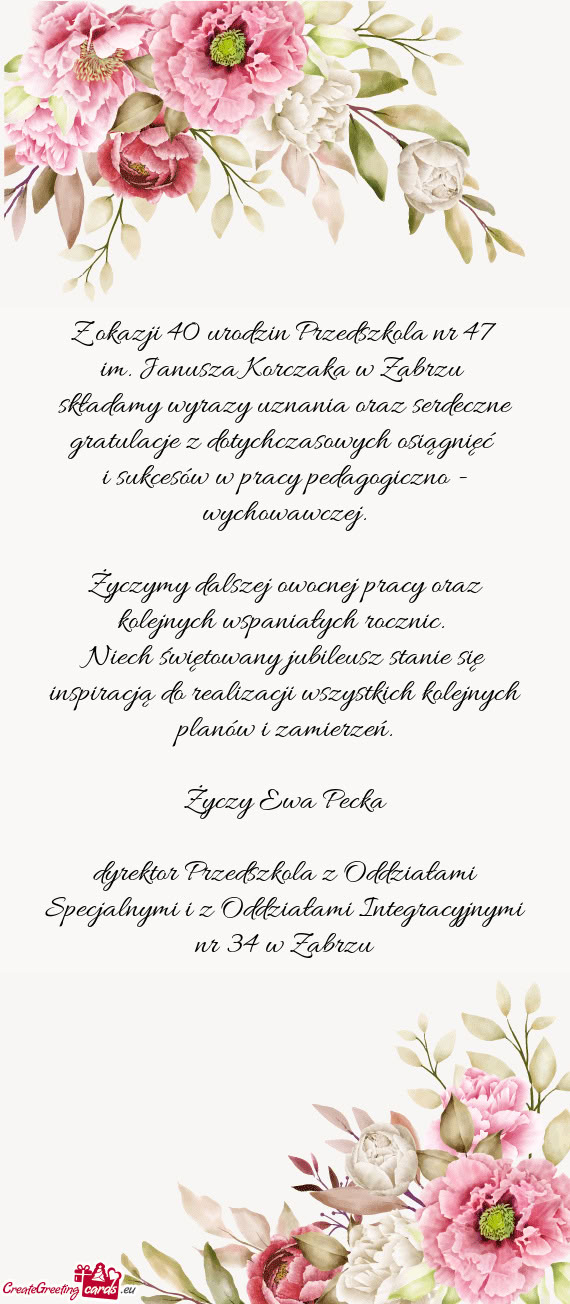 Z okazji 40 urodzin Przedszkola nr 47
im. Janusza Korczaka w Zabrzu
składamy wyrazy uznania oraz serdeczne
gratulacje z dotychczasowych osiągnięć
i sukcesów w pracy pedagogiczno -
wychowawczej.
Życzymy dalszej owocnej pracy oraz
kolejnych wspaniałych rocznic.
Niech świętowany jubileusz stanie się
inspiracją do realizacji wszystkich kolejnych
planów i zamierzeń.
Życzy Ewa Pecka
dyrektor Przedszkola z Oddziałami
Specjalnymi i z Oddziałami Integracyjnymi
nr 34 w Zabrzu
CreateGreeting cards .eu